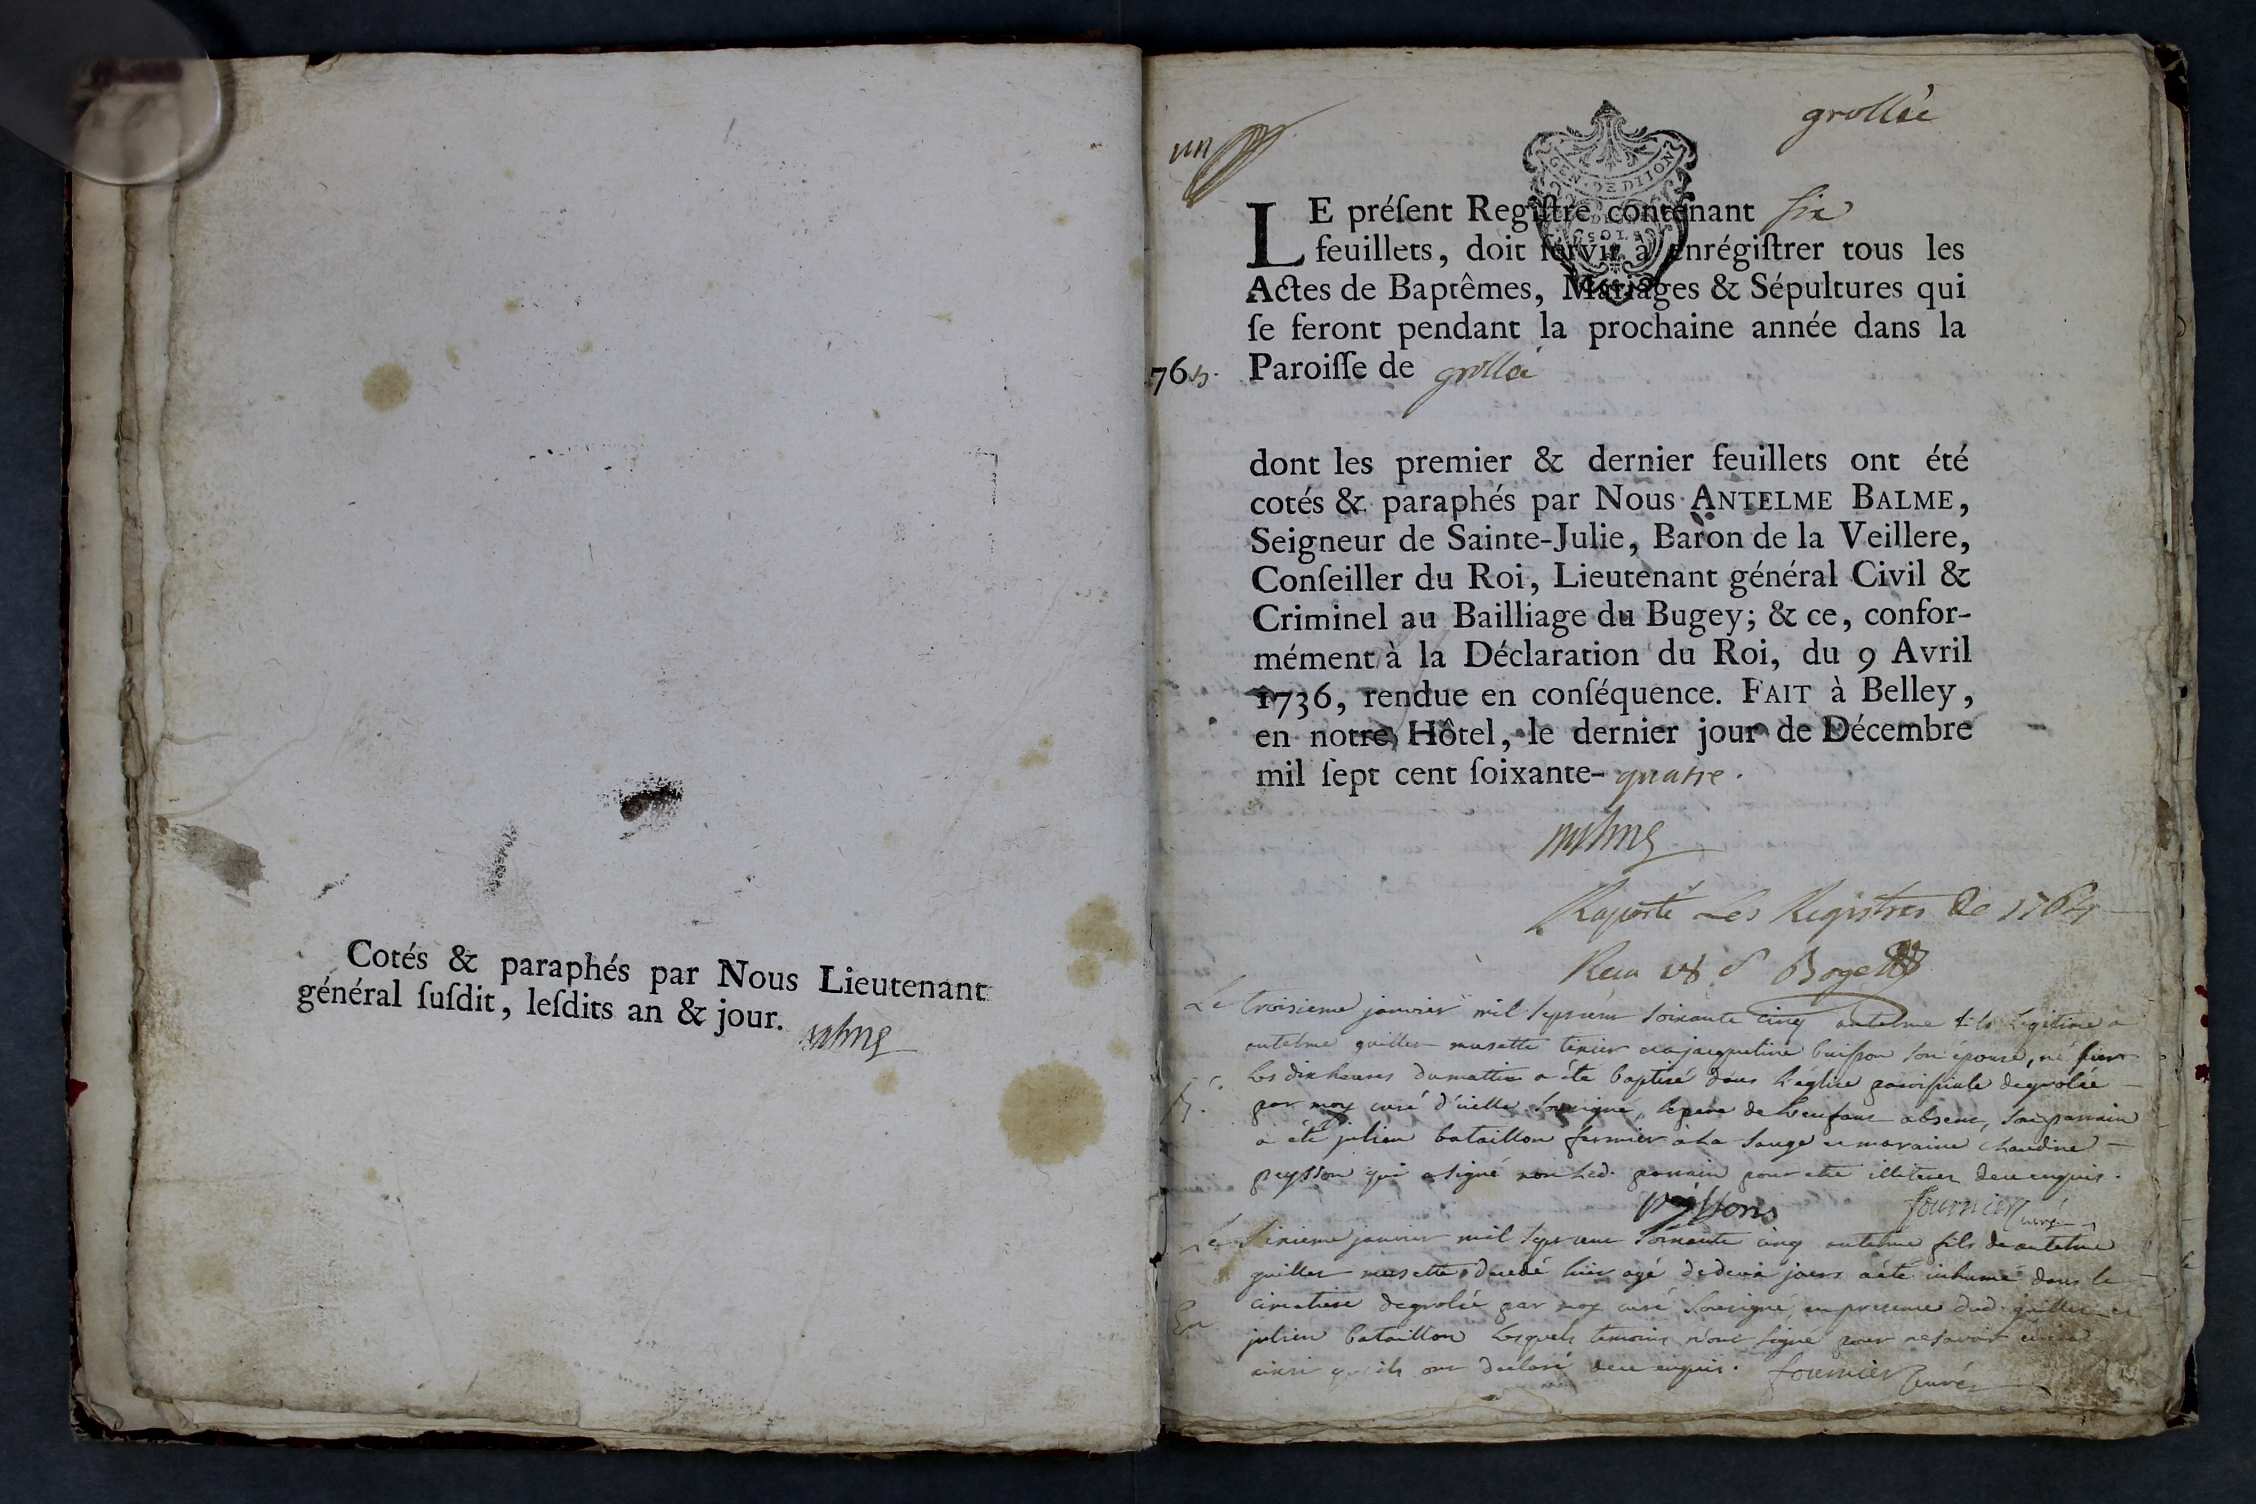 Cotés & paraphés par Nous Lieutenant
général ſuſdit, leſdits an & jour.
un
grollée
GEN. DE DIJON
LE préſent Regiſtre contenant ſix
feuillets, doit ſervir à enrégiſtrer tous les
Actes de Baptêmes, Mariages & Sépultures qui
ſe feront pendant la prochaine année dans la
Paroiſſe de grollée
dont les premier & dernier feuillets ont été
cotés & paraphés par Nous ANTELME BALME,
Seigneur de Sainte-Julie, Baron de la Veillere,
Conſeiller du Roi, Lieutenant général Civil &
Criminel au Bailliage du Bugey; & ce, confor-
mément à la Déclaration du Roi, du 9 Avril
1736, rendue en conſéquence. FAIT à Belley,
en notre Hôtel, le dernier jour de Décembre
mil ſept cent ſoixante-quatre.
Raporté Les Registres De 1764
Le troisieme janvier mil sept cent soixante cinq antelme fils legitime a
antelme guillet musette et jacqueline buisson son épouse, né hier
les dix heures du mattin a été baptisé dans l'église paroissiale de grolée
par moy curé d'icelle soussigné, le pere de l'enfant absent, son parrain
a été julien bataillon fermier à la sauge et maraine claudine
peysson qui a signé non led. parrain pour etre illeteré de ce enquis.
peyssons fournier curé
Le sixieme janvier mil sept cent soixante cinq antelme fils de antelme
guillet musette decedé hier agé de deux jours a été inhumé dans le
cimetiere de grolée par moy curé soussigné en presence dud. guillet et
julien bataillon lesquels temoins n'ont signé pour ne savoir ecrire
ainsi qu'ils ont declaré de ce enquis. fournier curé